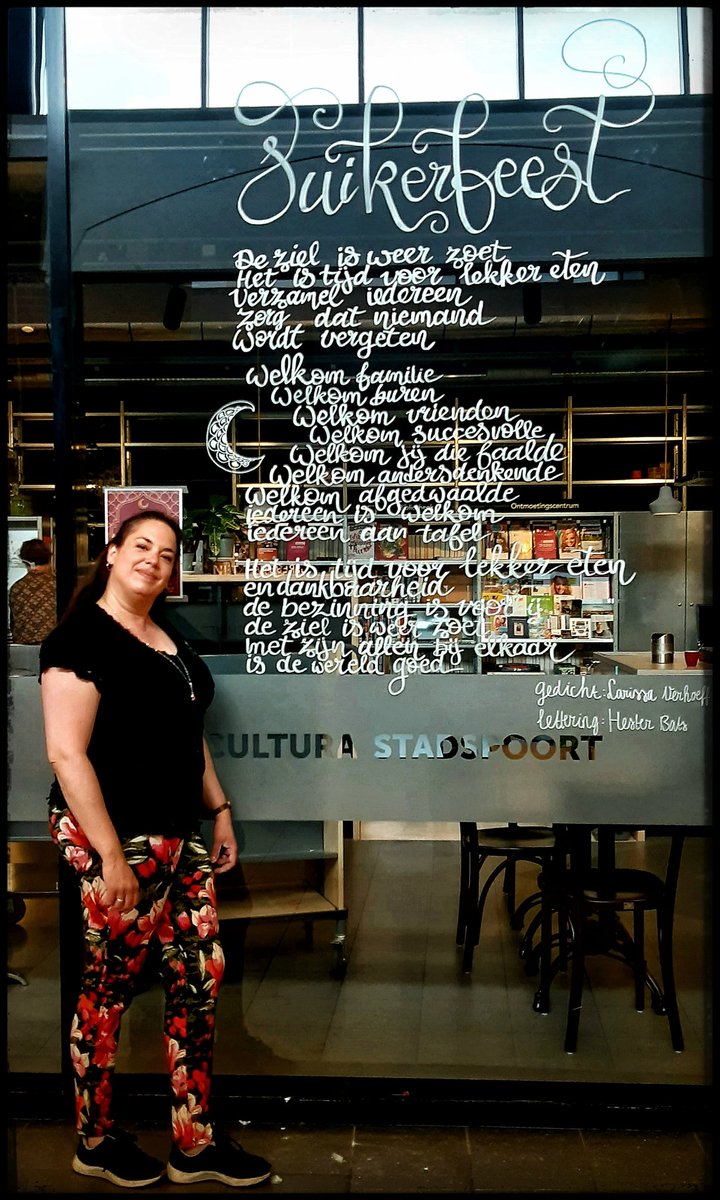 Suikerfeest
De ziel is weer zoet
Het is tijd voor lekker eten
Verzamel iedereen
Zorg dat niemand
Wordt vergeten
Welkom familie
Welkom buren
Welkom vrienden
Welkom succesvolle
Welkom jij die faalde
Welkom andersdenkende
Welkom afgedwaalde
iedereen is welkom
iedereen aan tafel
Ontmoetingscentrum
Het is tijd voor lekker eten
en dankbaarheid
de bezinning is voorbij
de ziel is weer zoet
met zijn allen bij elkaar
is de wereld goed
gedicht: Larissa Verhoeff
lettering: Hester Bats
CULTURA STADSPOORT